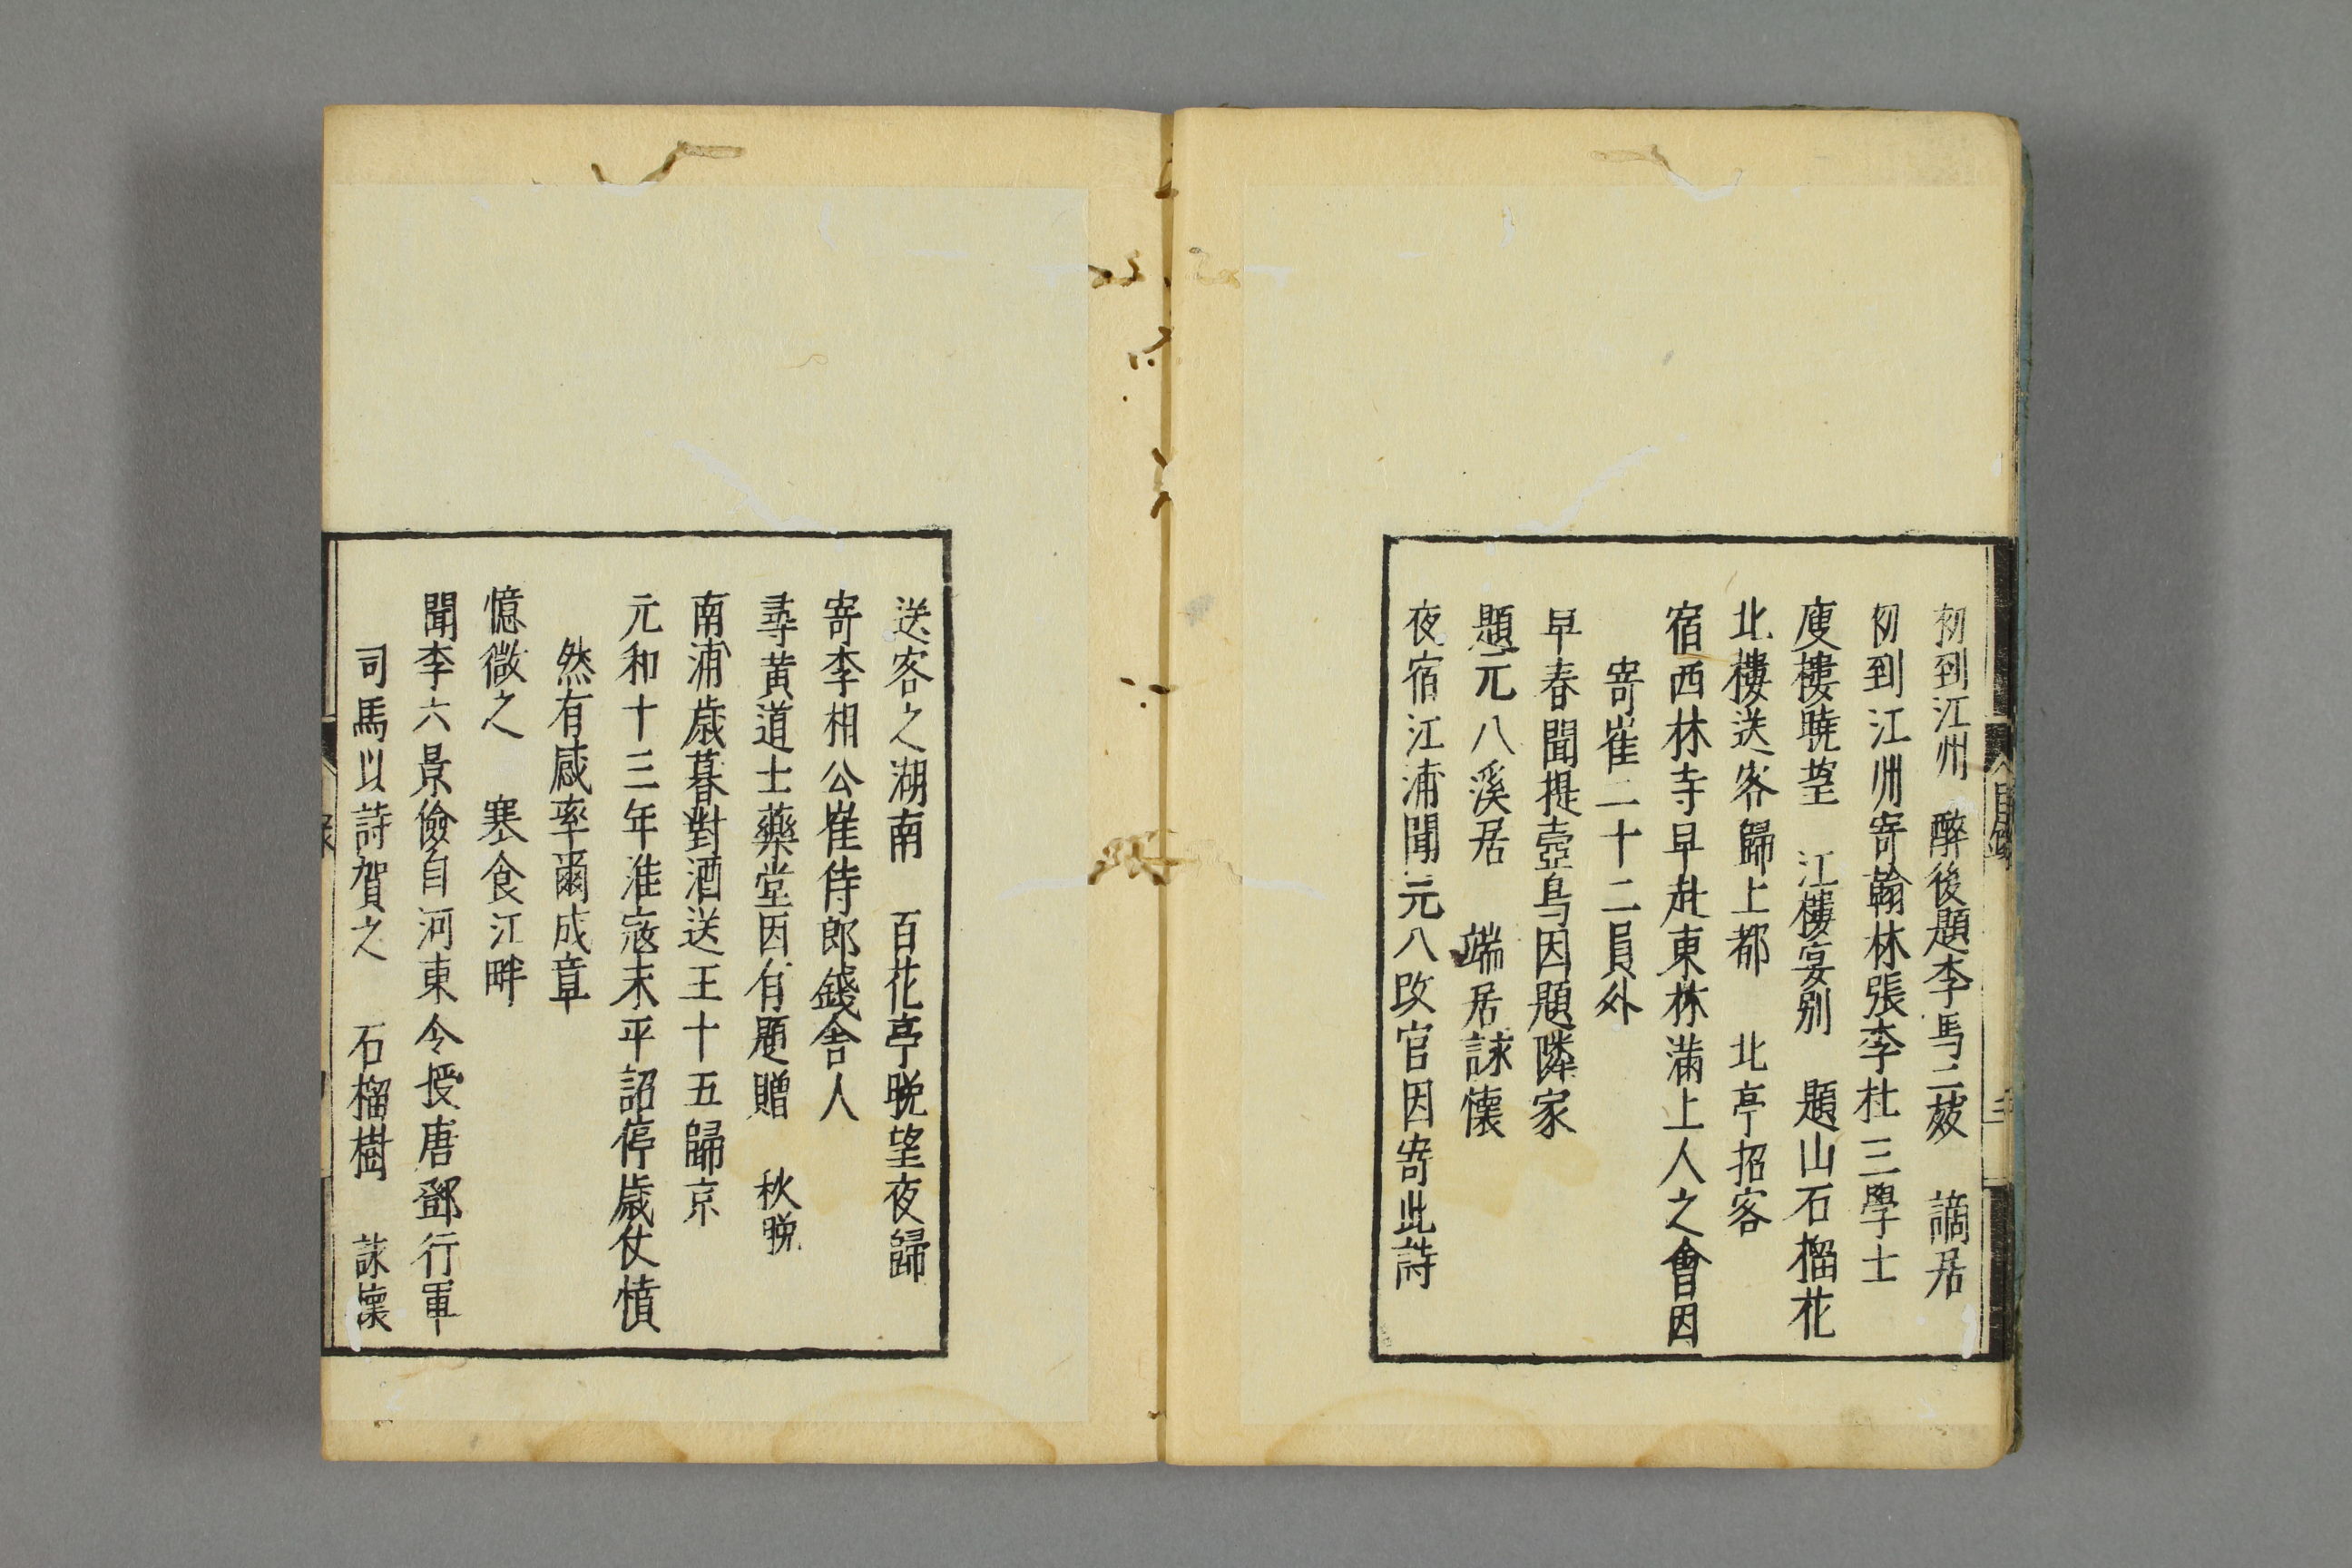 初到江州　醉後題李馬二妓　謫居
初到江州寄翰林張李杜三學士
庾樓曉望　江樓宴别　題山石榴花
北樓送客歸上都　北亭招客
宿西林寺早赴東林滿上人之會因
寄崔二十二員外
早春聞提壺鳥因題隣家
題元八溪居　端居詠懷
夜宿江浦聞元八改官因寄此詩
送客之湖南　百花亭晚望夜歸
寄李相公崔侍郎錢舍人
尋黄道士藥堂因有題贈　秋晚
南浦歳暮對酒送王十五歸京
元和十三年淮寇未平詔停歳仗憤
然有感率爾成章
憶微之　寒食江畔
聞李六景儉自河東令授唐鄧行軍
司馬以詩賀之　石榴樹　詠懷
目錄